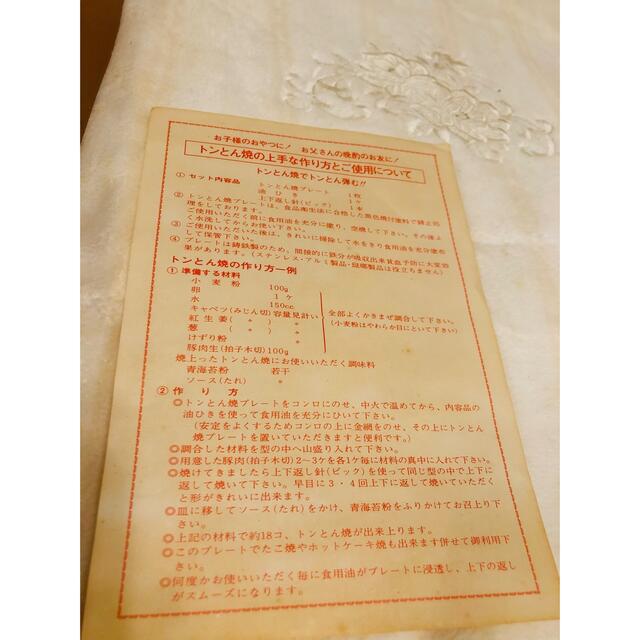 お子様のおやつに！　お父さんの晩酌のお友に！
トンとん焼の上手な作り方とご使用について
トンとん焼でトンとん弾む!!
① セット内容品　トンとん焼プレート　1枚
油ひき　1ケ
上下返し針(ピック)　1本
② トンとん焼プレートは、食品衛生法に合格した黒色焼付塗料で錆止処
理をしております。
ご使用いただく前に食用油を充分に塗り、空焼して下さい。その後よ
く水洗してからお使い下さい。
③ ご使用いただいた後は、きれいに掃除して水をきり食用油を充分塗布
して保管下さい。
④ プレートは鋳鉄製のため、間接的に鉄分が吸収出来貧血予防に大変効
果があります。(ステンレス・アルミ製品・琺瑯製品は役立ちません)
トンとん焼の作り方一例
① 準備する材料
小麦粉　100g
卵　1ケ
水　150cc
キャベツ(みじん切)容量見計い
紅生姜(　〃　)　〃
葱(　〃　)　〃
けずり粉　〃
豚肉生(拍子木切)100g
全部よくかきまぜ調合して下さい。
(小麦粉はやわらか目にといて下さい)
焼上ったトンとん焼にお使いいただく調味料
青海苔粉　若干
ソース(たれ)　〃
② 作り方
◎トンとん焼プレートをコンロにのせ、中火で温めてから、内容品の
油ひきを使って食用油を充分にひいて下さい。
(安定をよくするためコンロの上に金網をのせ、その上にトンとん
焼プレートを置いていただきますと便利です。)
◎調合した材料を型の中へ山盛り入れて下さい。
◎用意した豚肉(拍子木切)2～3ケを各1ケ毎に材料の真中に入れて下さい。
◎焼けてきましたら上下返し針(ピック)を使って同じ型の中で上下に
返して焼いて下さい。早目に3・4回上下に返して焼いていただく
と形がきれいに出来ます。
◎皿に移してソース(たれ)をかけ、青海苔粉をふりかけてお召上り下
さい。
◎上記の材料で約18コ、トンとん焼が出来上ります。
◎このプレートでたこ焼やホットケーキ焼も出来ます併せて御利用下
さい。
◎何度かお使いいただく毎に食用油がプレートに浸透し、上下の返し
がスムーズになります。